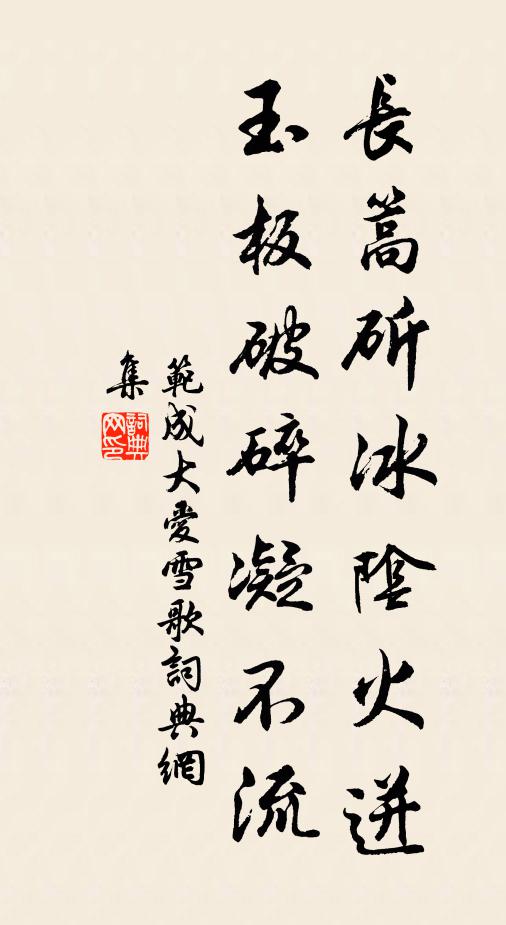 長蒿斫冰陰火迸
玉板破碎凝不流
範成大愛雪歌詞典網
集
詞典網印